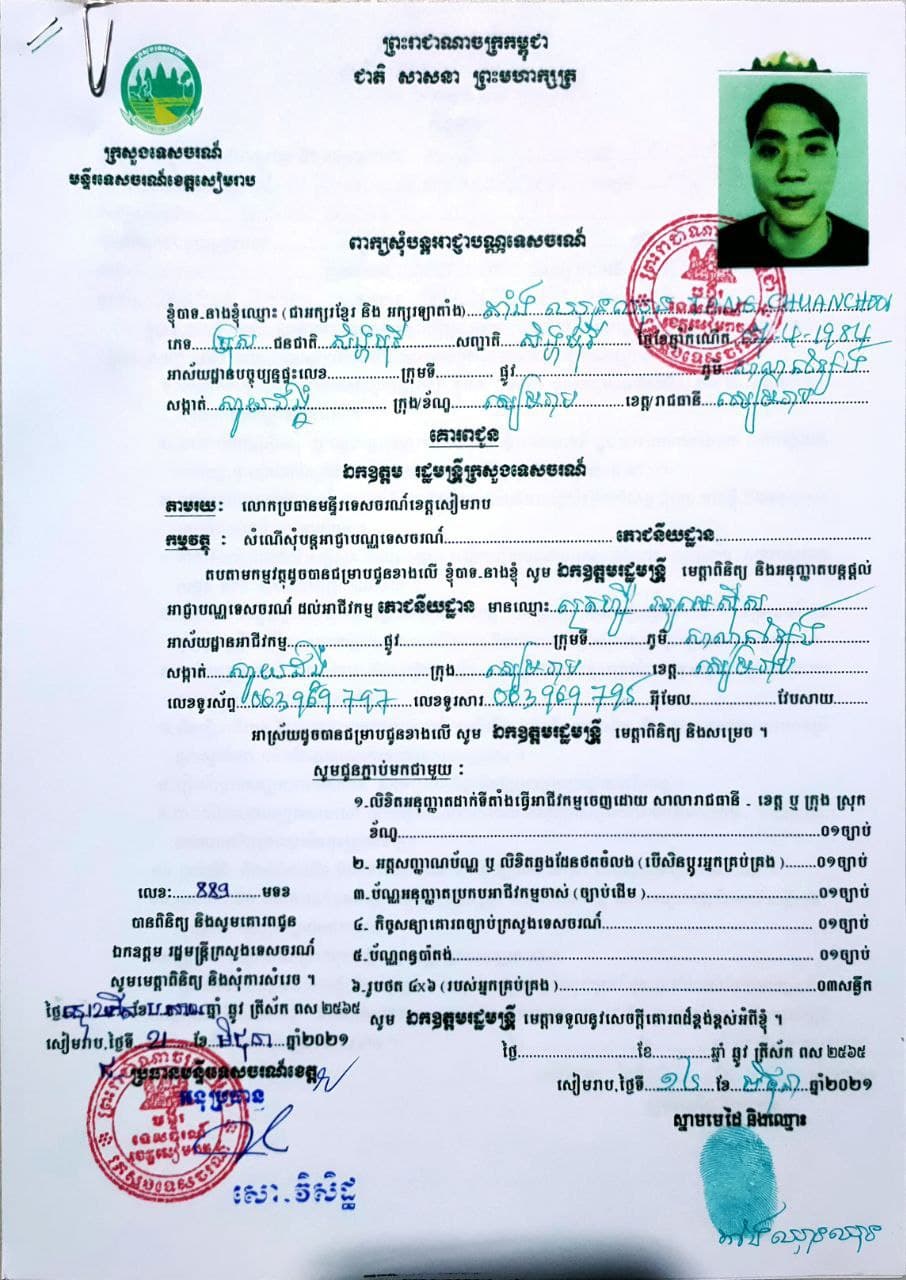 ព្រះរាជាណាចក្រកម្ពុជា
ជាតិ សាសនា ព្រះមហាក្សត្រ
ក្រសួងទេសចរណ៍
មន្ទីរទេសចរណ៍ខេត្តសៀមរាប
ពាក្យសុំបន្តអាជ្ញាបណ្ណទេសចរណ៍
ខ្ញុំបាទ-នាងខ្ញុំឈ្មោះ (ជាអក្សរខ្មែរ និង អក្សរឡាតាំង)..... TANG CHUANCHOOI
ភេទ.....ប្រុស ជនជាតិ សិង្ហបុរី.....សញ្ជាតិ សិង្ហបុរី ថ្ងៃខែឆ្នាំកំណើត -4-1984
អាស័យដ្ឋានបច្ចុប្បន្នផ្ទះលេខ............ក្រុមទី............ ផ្លូវ............ភូមិ
សង្កាត់............ ក្រុង/ខ័ណ្ឌ សៀមរាប ខេត្ត/រាជធានី សៀមរាប
គោរពជូន
ឯកឧត្តម រដ្ឋមន្ត្រីក្រសួងទេសចរណ៍
តាមរយៈ លោកប្រធានមន្ទីរទេសចរណ៍ខេត្តសៀមរាប
កម្មវត្ថុ : សំណើសុំបន្តអាជ្ញាបណ្ណទេសចរណ៍............ភោជនីយដ្ឋាន............
តបតាមកម្មវត្ថុដូចបានជម្រាបជូនខាងលើ ខ្ញុំបាទ-នាងខ្ញុំ សូម ឯកឧត្តមរដ្ឋមន្ត្រី មេត្តាពិនិត្យ និងអនុញ្ញាតបន្តផ្តល់
អាជ្ញាបណ្ណទេសចរណ៍ ដល់អាជីវកម្ម ភោជនីយដ្ឋាន មានឈ្មោះ
អាស័យដ្ឋានអាជីវកម្ម............ផ្លូវ............ក្រុមទី............ភូមិ
សង្កាត់............ក្រុង សៀមរាប ខេត្ត សៀមរាប
លេខទូរស័ព្ទ 063 969 797 លេខទូរសារ 063 969 795 អ៊ីមែល............វែបសាយ........
អាស្រ័យដូចបានជម្រាបជូនខាងលើ សូម ឯកឧត្តមរដ្ឋមន្ត្រី មេត្តាពិនិត្យ និងសម្រេច ។
សូមជូនភ្ជាប់មកជាមួយ :
១.លិខិតអនុញ្ញាតដាក់ទីតាំងធ្វើអាជីវកម្មចេញដោយ សាលារាជធានី - ខេត្ត ឬ ក្រុង ស្រុក
ខ័ណ្ឌ............០១ច្បាប់
២. អត្តសញ្ញាណប័ណ្ណ ឬ លិខិតឆ្លងដែនថតចំលង (បើសិនប្តូរអ្នកគ្រប់គ្រង)........០១ច្បាប់
៣.ប័ណ្ណអនុញ្ញាតប្រកបអាជីវកម្មចាស់ (ច្បាប់ដើម)............០១ច្បាប់
៤. កិច្ចសន្យាគោរពច្បាប់ក្រសួងទេសចរណ៍............០១ច្បាប់
៥.ប័ណ្ណពន្ធប៉ាតង់............០១ច្បាប់
៦.រូបថត ៤x៦ (របស់អ្នកគ្រប់គ្រង)............០៣សន្លឹក
សូម ឯកឧត្តមរដ្ឋមន្ត្រី មេត្តាទទួលនូវសេចក្តីគោរពដ៏ខ្ពង់ខ្ពស់អំពីខ្ញុំ ។
ថ្ងៃ............ខែ............ឆ្នាំ ឆ្លូវ ត្រីស័ក ពស ២៥៦៥
សៀមរាប,ថ្ងៃទី ខែ មិថុនា ឆ្នាំ២០២១
ស្នាមមេដៃ និងឈ្មោះ
លេខ:......889......មទខ
បានពិនិត្យ និងសូមគោរពជូន
ឯកឧត្តម រដ្ឋមន្ត្រីក្រសួងទេសចរណ៍
សូមមេត្តាពិនិត្យ និងសុំការសំរេច ។
ឆ្នាំ ឆ្លូវ ត្រីស័ក ពស ២៥៦៥
សៀមរាប,ថ្ងៃទី ខែ មិថុនា ឆ្នាំ២០២១
ប្រធានមន្ទីរទេសចរណ៍ខេត្ត
អនុប្រធាន
សោ.វិសិដ្ឋ